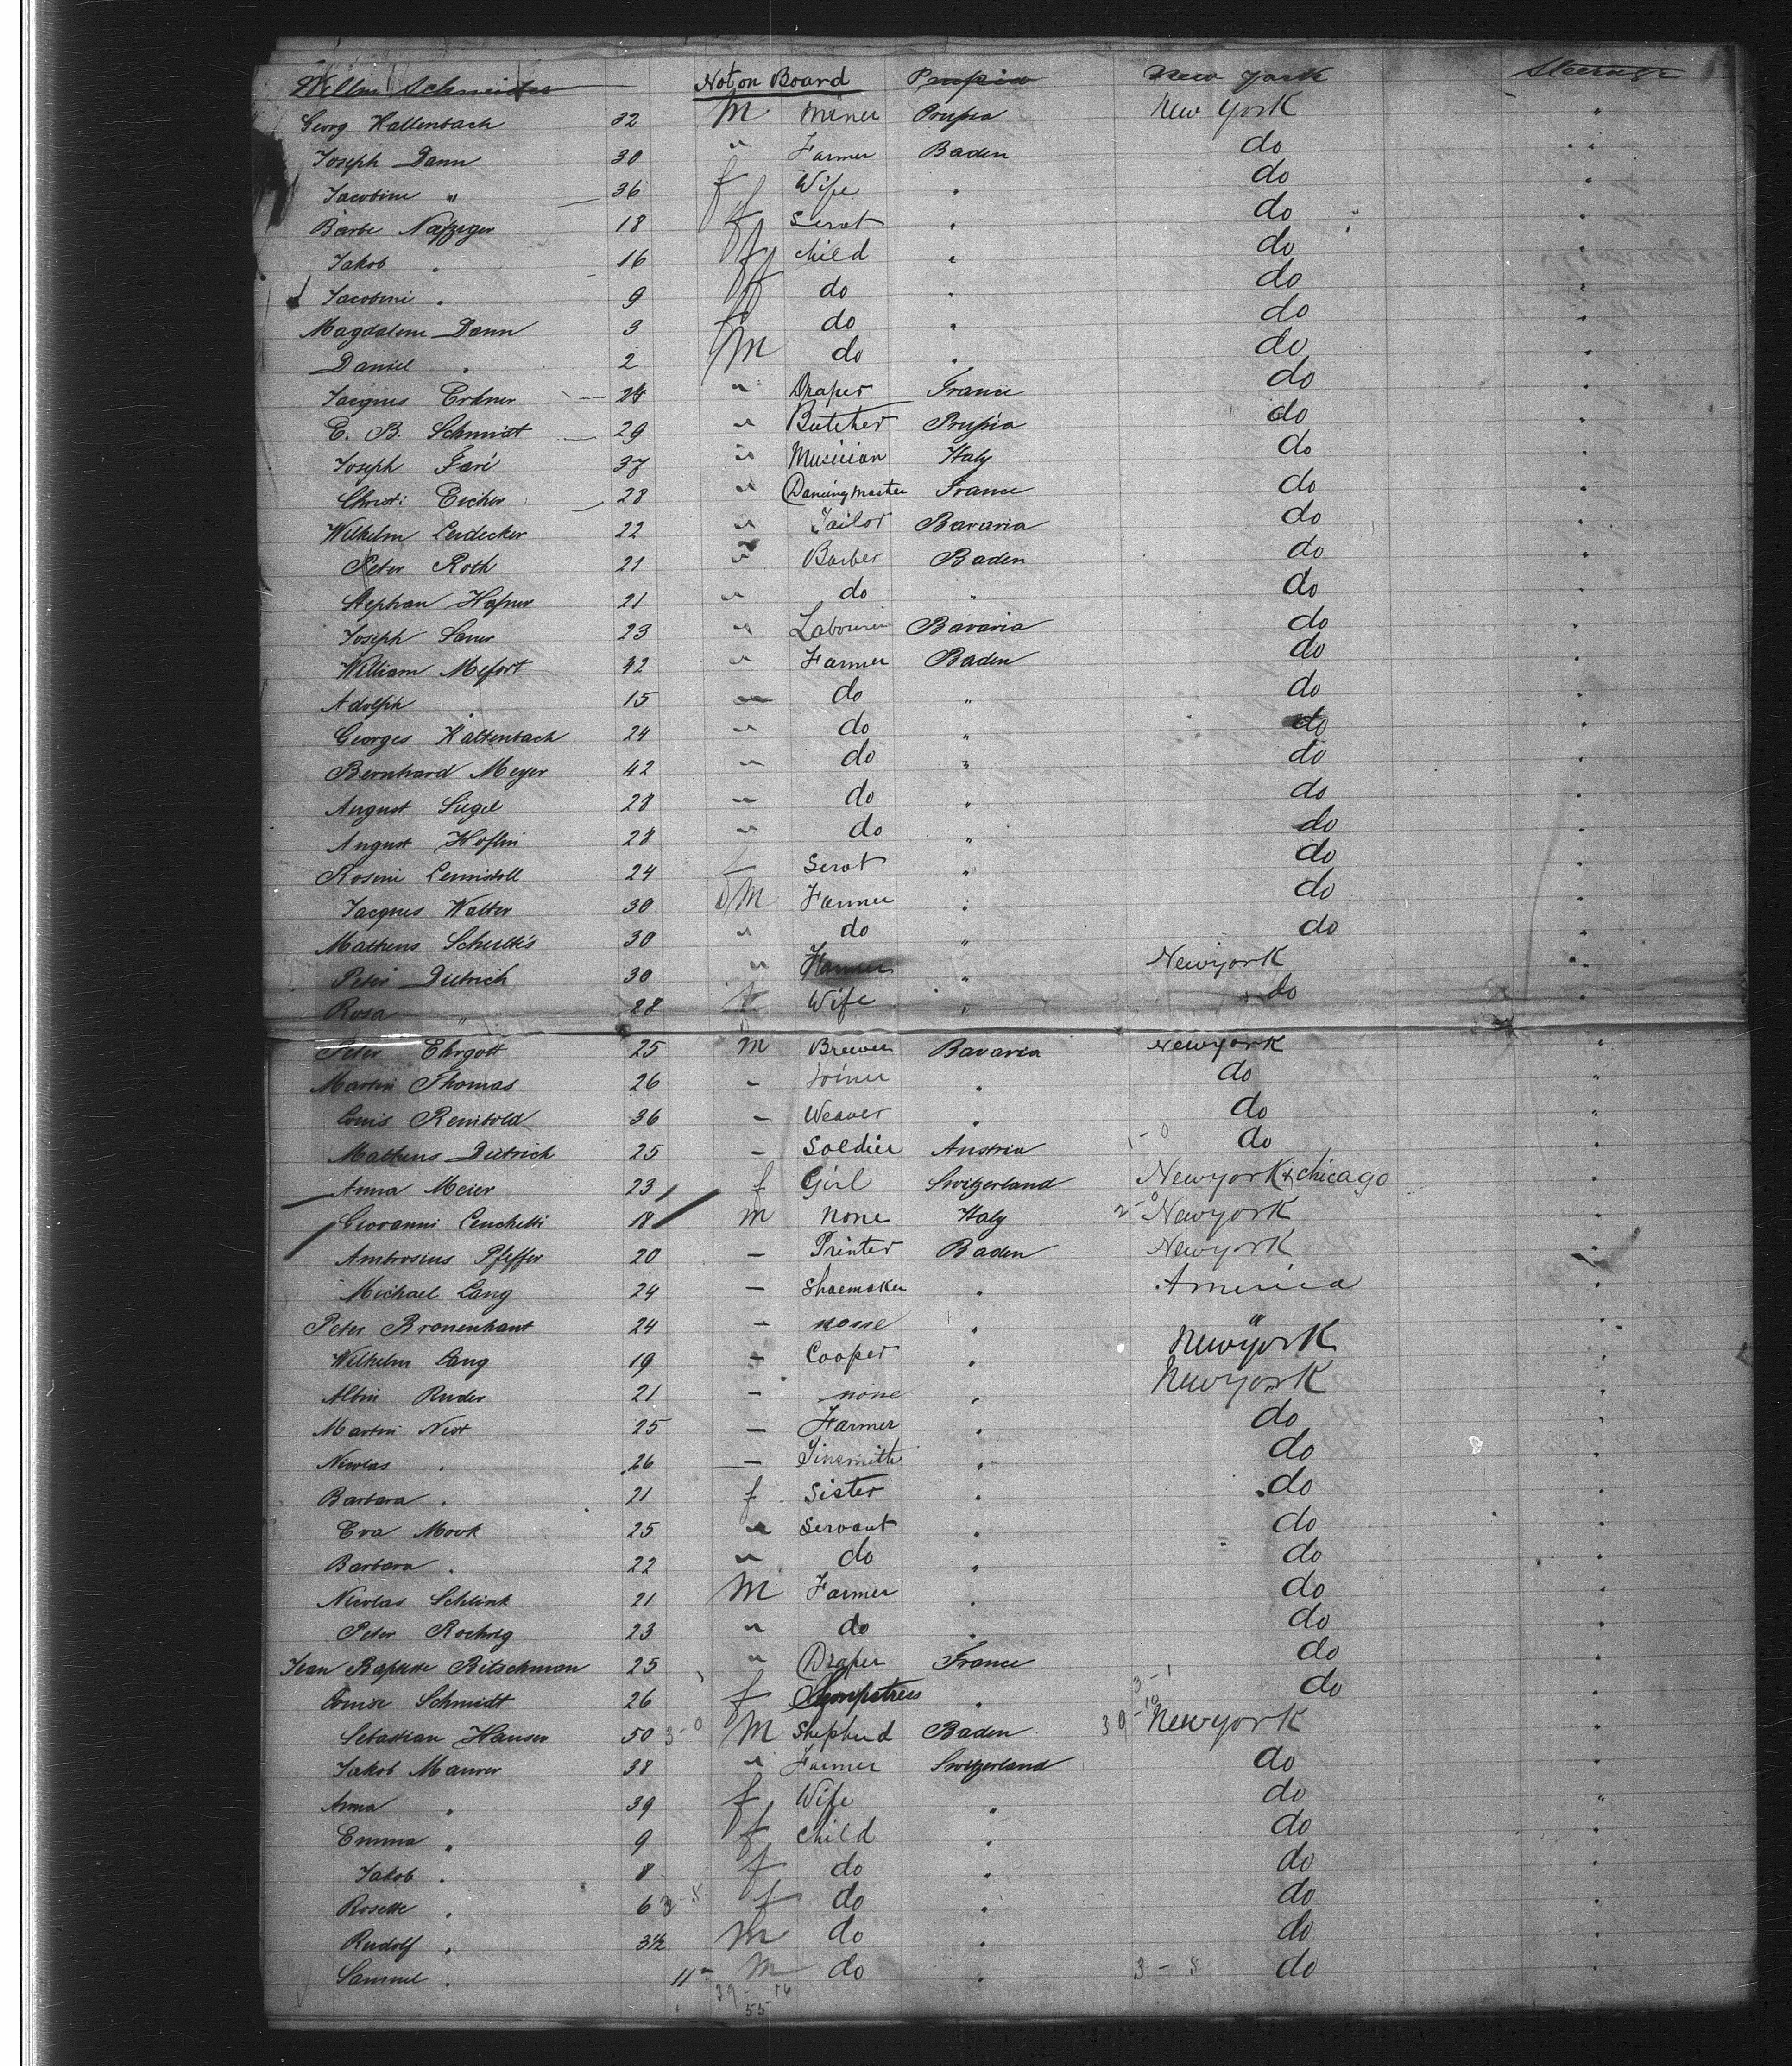 Wilhm Schneider Not on Board Prussia New York Steerage
Georg Kaltenbach 32 M Miner Prussia New York "
Joseph Dann 30 " Farmer Baden do "
Jacobine " 36 f Wife " do "
Barbe Nafzeger 18 f Servt " do "
Jakob " 16 f child " do "
Jacobini " 9 f do " do "
Magdalena Dann 3 f do " do "
Daniel " 2 M do " do "
Jacques Erkner 24 " Draper France do "
E. B. Schmidt 29 " Butcher Prussia do "
Joseph Fari 37 " Musician Italy do "
Christ: Eicher 28 " Dancing master France do "
Wilhelm Leidecker 22 " Tailor Bavaria do "
Peter Roth 21 " Barber Baden do "
Stephan Hafner 21 " do " do "
Joseph Saur 23 " Labourer Bavaria do "
William Mefort 42 " Farmer Baden do "
Adolph " 15 " do " do "
Georges Kaltenbach 24 " do " do "
Bernhard Meyer 42 " do " do "
August Siegel 28 " do " do "
August Hoflin 28 " do " do "
Rosini 24 f Servt " do "
Jacques Walter 30 M Farmer " do "
Matheus Schultis 30 " do " do "
Peter Dietrich 30 " Farmer " Newyork "
Rosa " 28 f Wife " do "
Peter Ehrgott 25 M Brewer Bavaria Newyork "
Martin Thomas 26 - Joiner " do "
Louis Reinbold 36 - Weaver " do "
Matheus Dietrich 25 - Soldier Austria do "
Anna Meier 23 f Girl Switzerland Newyork & chicago "
Giovanni Lenchetti 18 M none Italy 2-0 Newyork "
Ambrosius Pfeffer 20 - Printer Baden Newyork "
Michael Lang 24 - Shoemaker " America "
Peter Bronenkant 24 - none " " "
Wilhelm Lang 19 - Cooper " Newyork "
Albin Ruder 21 - none " Newyork "
Martin Nist 25 - Farmer " do "
Nicolas " 26 - Tinsmith " do "
Barbara " 21 f Sister " do "
Eva Mook 25 " Servant " do "
Barbara " 22 " do " do "
Nicolas Schlink 21 M Farmer " do "
Peter Roehrig 23 " do " do "
Jean Baptiste Bitschman 25 " Draper France do "
Louise Schmidt 26 f Sempstress " 3-1 do "
Sebastian Hauser 50 3-0 M Shepherd Baden 39-10 Newyork "
Jakob Maurer 38 " Farmer Switzerland do "
Anna " 39 f Wife " do "
Emma " 9 f child " do "
Jakob " 8 f do " do "
Rosette " 6 f do " do "
Rudolf " 3½ M do " do "
Samuel " 11 m M do " 3-8 do "
39-16
55